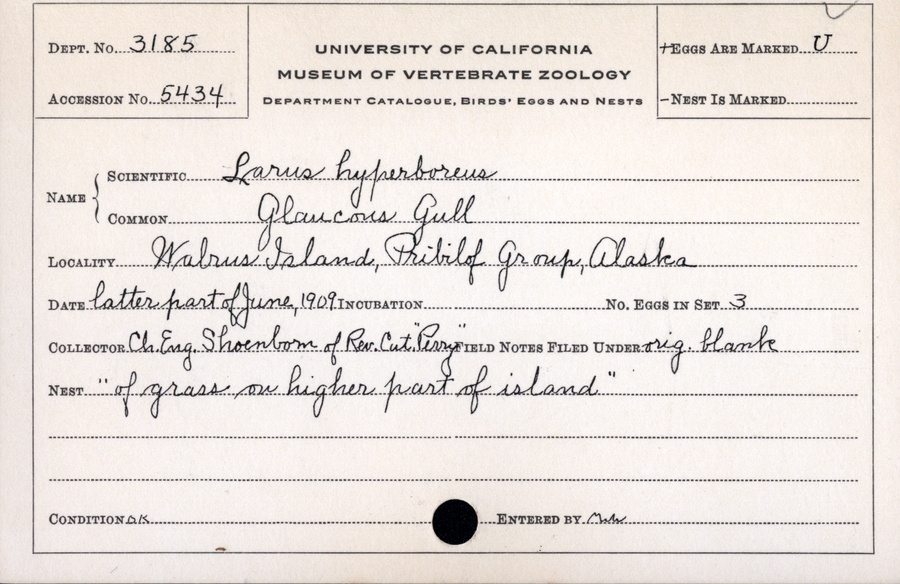 DEPT. No. 3185
ACCESSION No. 5434
UNIVERSITY OF CALIFORNIA
MUSEUM OF VERTEBRATE ZOOLOGY
DEPARTMENT CATALOGUE, BIRDS' EGGS AND NESTS
+EGGS ARE MARKED U
-NEST IS MARKED
NAME
SCIENTIFIC Larus hyperboreus
COMMON Glaucous Gull
LOCALITY Walrus Island, Pribilof Group, Alaska
DATE latter part of June, 1909 INCUBATION No. EGGS IN SET 3
COLLECTOR Ch. Eng. Shoenborn of Rev. Cut. "Perry" FIELD NOTES FILED UNDER orig. blank
NEST "of grass on higher part of island"
CONDITION OK ENTERED BY